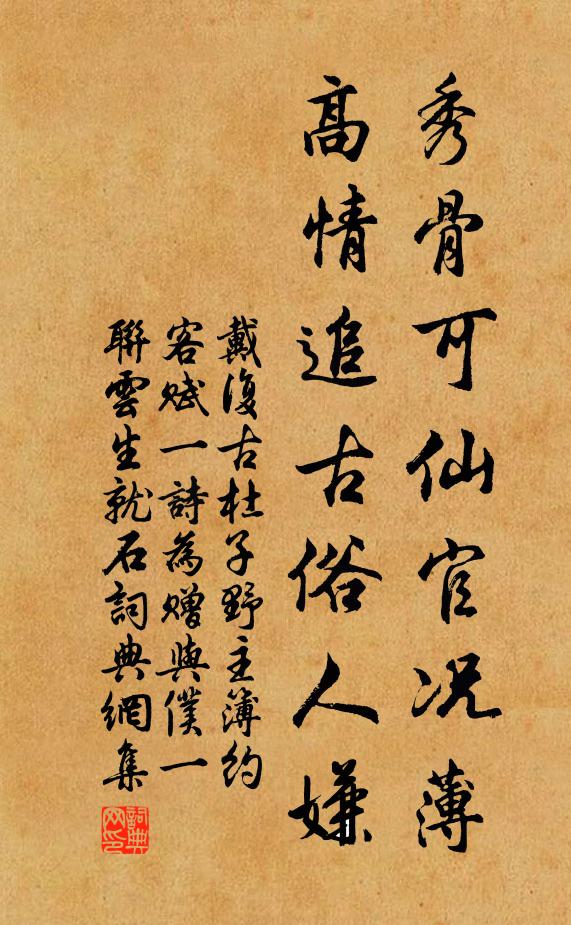 秀骨可仙官况薄
高情追古俗人嫌
戴復古杜子野主簿約
客賦一詩為贈與僕一
聯雲生就石詞典網集
詞典
网印